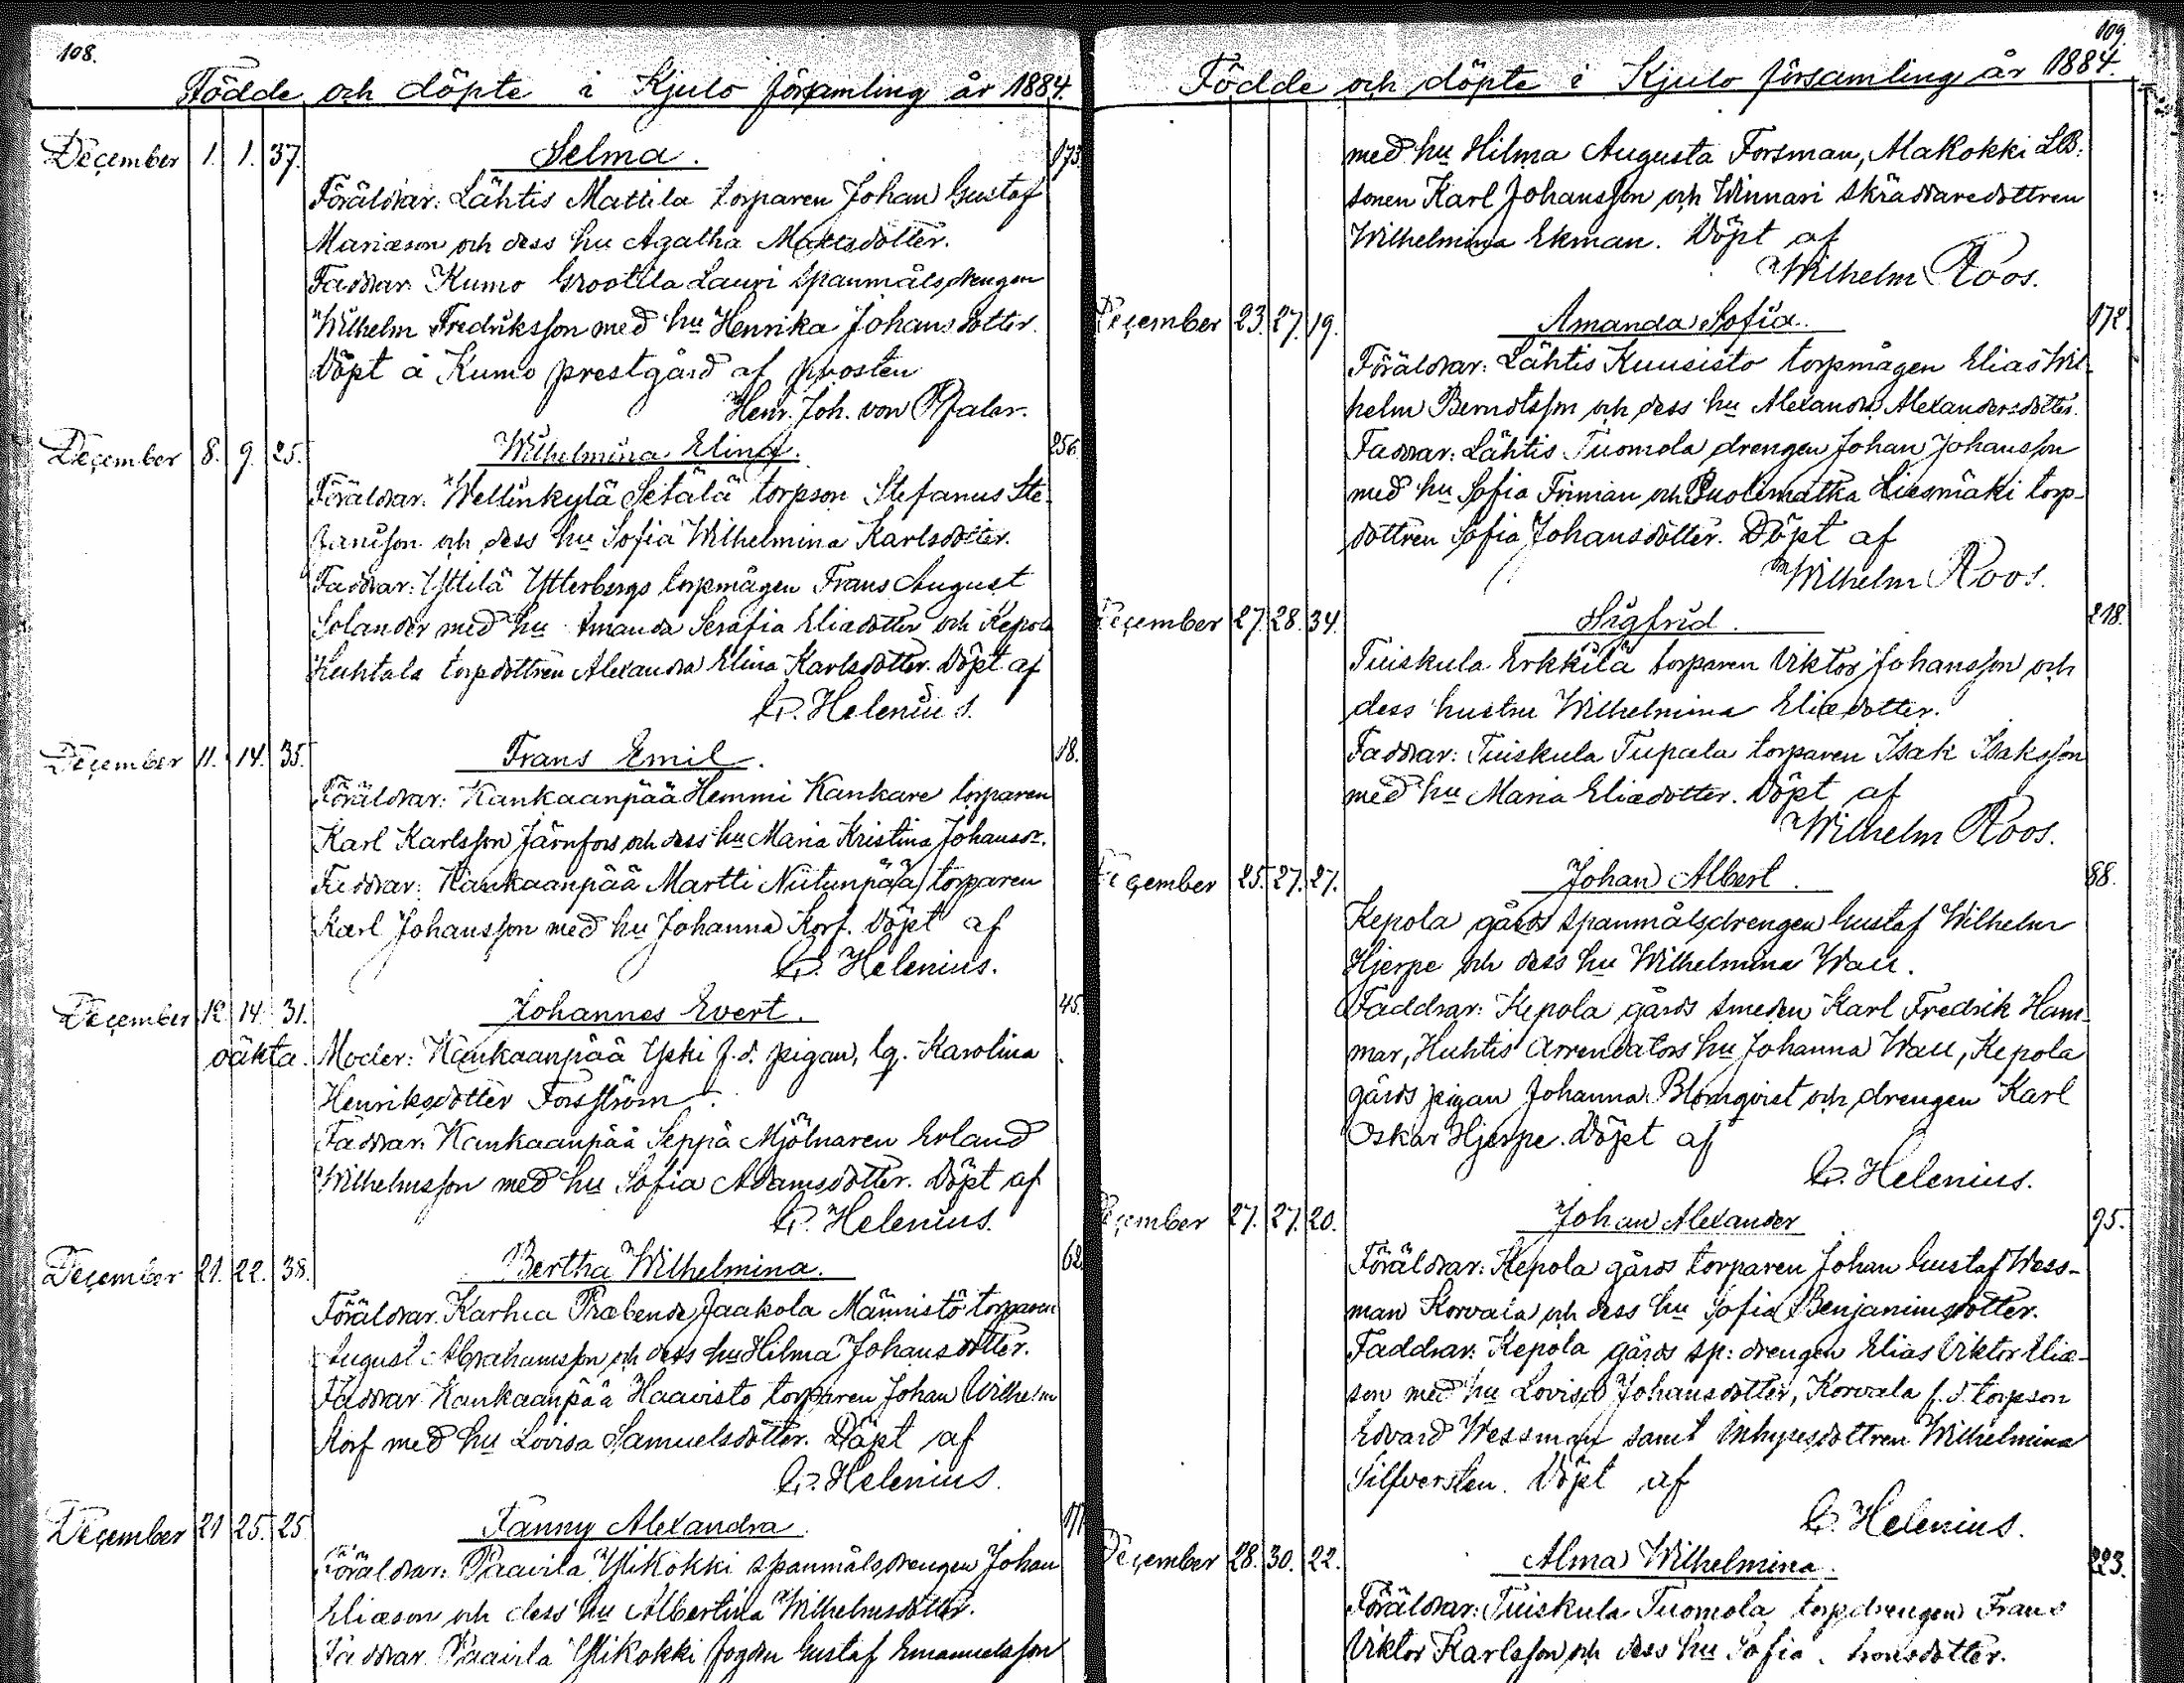 108.
Födde och döpte i Kjulo församling år 1884.
December 1. 1. 37. Selma. 173
Föräldrar: Lähtis Mattila torparen Johan Gustaf
Mariæson och dess hu Agatha Mattsdotter.
Faddrar. Kumo Grootila Lauri spanmålsdrengen
Wilhelm Fredriksson med hu Henrika Johansdotter.
Döpt å Kumo prestgård af prosten
Henr. Joh. von Pfaler.
December 8. 9. 25. Wilhelmina Elina. 256
Föräldrar. Wellinkylä Setälä torpson Stefanus Ste-
fansson och dess hu Sofia Wilhelmina Karlsdotter.
Faddrar: Yttilä Ytterbergs torpmågen Frans August
Solander med hu Amanda Serafia Eliædotter och Kepola
Huhtala torpdottren Alexandra Elina Karlsdotter. Döpt af
Helenius.
December 11. 14. 35. Frans Emil. 18.
Föräldrar: Kankaanpää Hemmi Kankare torparen
Karl Karlsson Järnfors och dess hu Maria Kristina Johansdr.
Faddrar: Kankaanpää Martti Niitunpää torparen
Karl Johansson med hu Johanna Korf. Döpt af
Helenius.
December 12 14. 31. Johannes Evert. 45.
oäkta. Moder: Kankaanpää Yski f.d. pigan, lg. Karolina
Henriksdotter Forsström.
Faddrar. Kankaanpää Seppä Mjölnaren Erland
Wilhelmsson med hu Sofia Adamsdotter. Döpt af
Helenius.
December 21. 22. 38. Bertha Wilhelmina. 62
Föräldrar. Karhia Præbende Jaakola Männistö torparen
August Abrahamsson och dess hu Hilma Johansdotter.
Faddrar Kankaanpää Haavisto torparen Johan Wilhelm
Korf med hu Lovisa Samuelsdotter. Döpt af
Helenius.
December 21 25. 25. Fanny Alexandra.
Föräldrar: Paavila Ylikokki spanmålsdrengen Johan
Eliæson och dess hu Albertina Wilhelmsdotter.
Faddrar. Paavila Ylikokki fogden Gustaf Emanuelsson
109.
Födde och döpte i Kjulo församling år 1884.
med hu Hilma Augusta Forsman, Alakokki LB:
sonen Karl Johansson och Winnari skräddaredottren
Wilhelmina Ekman. Döpt af
Wilhelm Roos.
December 23. 27. 19. Amanda Sofia. 172.
Föräldrar: Lähtis Kuusisto torpmågen Elias Wil-
helm Berndtsson och dess hu Alexandra Alexandersdotter.
Faddrar: Lähtis Tuomola drengen Johan Johansson
med hu Sofia Firman och Puolimatka Liesmäki torp-
dottren Sofia Johansdotter. Döpt af
Wilhelm Roos.
December 27. 28. 34. Sigfrid. 218.
Tuiskula Erkkilä torparen Viktor Johansson och
dess hustru Wilhelmina Eliædotter.
Faddrar: Tuiskula Tupala torparen Isak Isaksson
med hu Maria Eliædotter. Döpt af
Wilhelm Roos.
December 25. 27. 27. Johan Albert. 88.
Kepola gårds spanmålsdrengen Gustaf Wilhelm
Hjerpe och dess hu Wilhelmina Wall.
Faddrar: Kepola gårds smeden Karl Fredrik Ham-
mar, Huhtis Arrendators hu Johanna Wall, Kepola
gårds pigan Johanna Blomqvist och drengen Karl
Oskar Hjerpe. Döpt af
Helenius.
December 27. 27. 20. Johan Alexander 95.
Föräldrar: Kepola gårds torparen Johan Gustaf Wess-
man Korvala och dess hu Sofia Benjaminsdotter.
Faddrar: Kepola gårds sp: drengen Elias Viktor Eliæ-
son med hu Lovisa Johansdotter, Korvala f.d. torpson
Edvard Wessman samt Inhysesdottren Wilhelmina
Silfversten. Döpt af
Helenius.
December 28. 30. 22. Alma Wilhelmina. 223.
Föräldrar: Tuiskula Tuomola torpdrengen Frans
Viktor Karlsson och dess hu Sofia